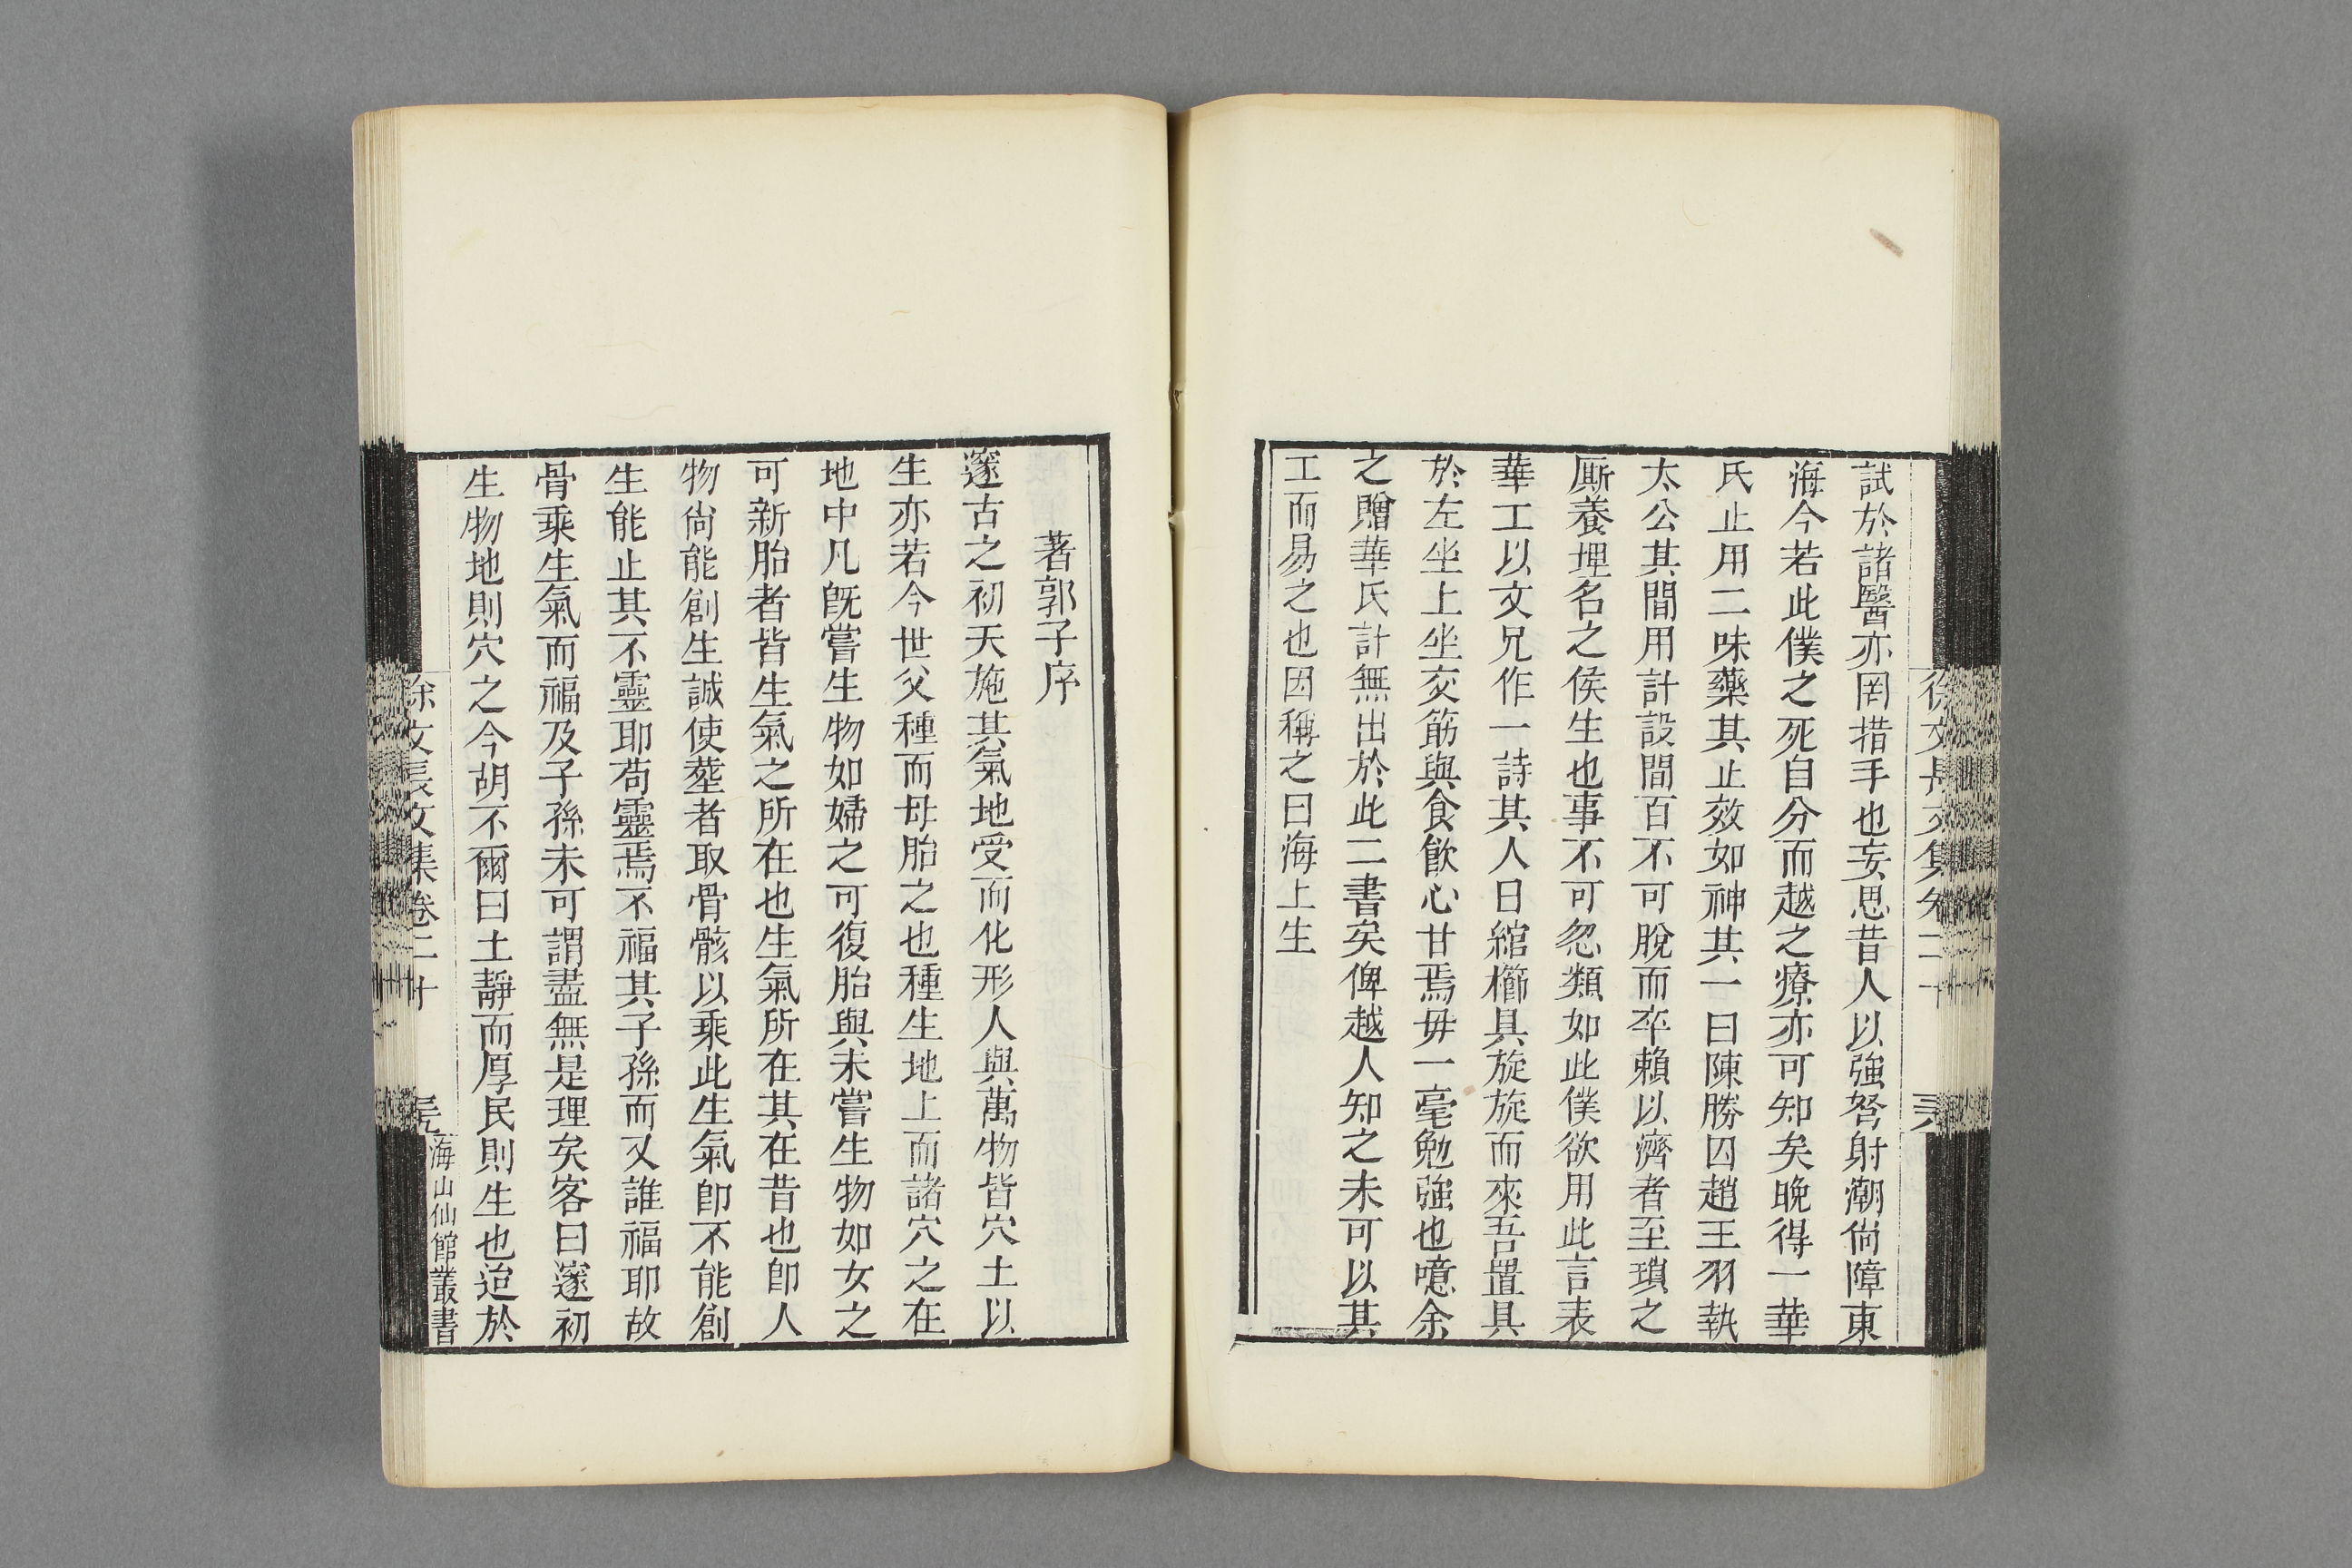 徐文長文集卷二十
試於諸醫亦罔措手也妄思昔人以強弩射潮尙障東
海今若此僕之死自分而越之療亦可知矣晚得一華
氏止用二味藥其止效如神其一曰陳勝囚趙王羽執
太公其間用計設間百不可脫而卒賴以濟者至瑣之
厮養埋名之侯生也事不可忽類如此僕欲用此言表
華工以文兄作一詩其人日綰櫛具旋旋而來吾置具
於左坐上坐交筯與食飮心甘焉毋一毫勉強也噫余
之贈華氏計無出於此二書矣俾越人知之未可以其
工而易之也因稱之曰海上生
著郭子序
邃古之初天施其氣地受而化形人與萬物皆穴土以
生亦若今世父種而母胎之也種生地上而諸穴之在
地中凡旣嘗生物如婦之可復胎與未嘗生物如女之
可新胎者皆生氣之所在也生氣所在其在昔也卽人
物尙能創生誠使塟者取骨骸以乘此生氣卽不能創
生能止其不靈耶苟靈焉不福其子孫而又誰福耶故
骨乘生氣而福及子孫未可謂盡無是理矣客曰邃初
生物地則穴之今胡不爾曰土靜而厚民則生也迨於
徐文長文集卷二十
海山仙館叢書